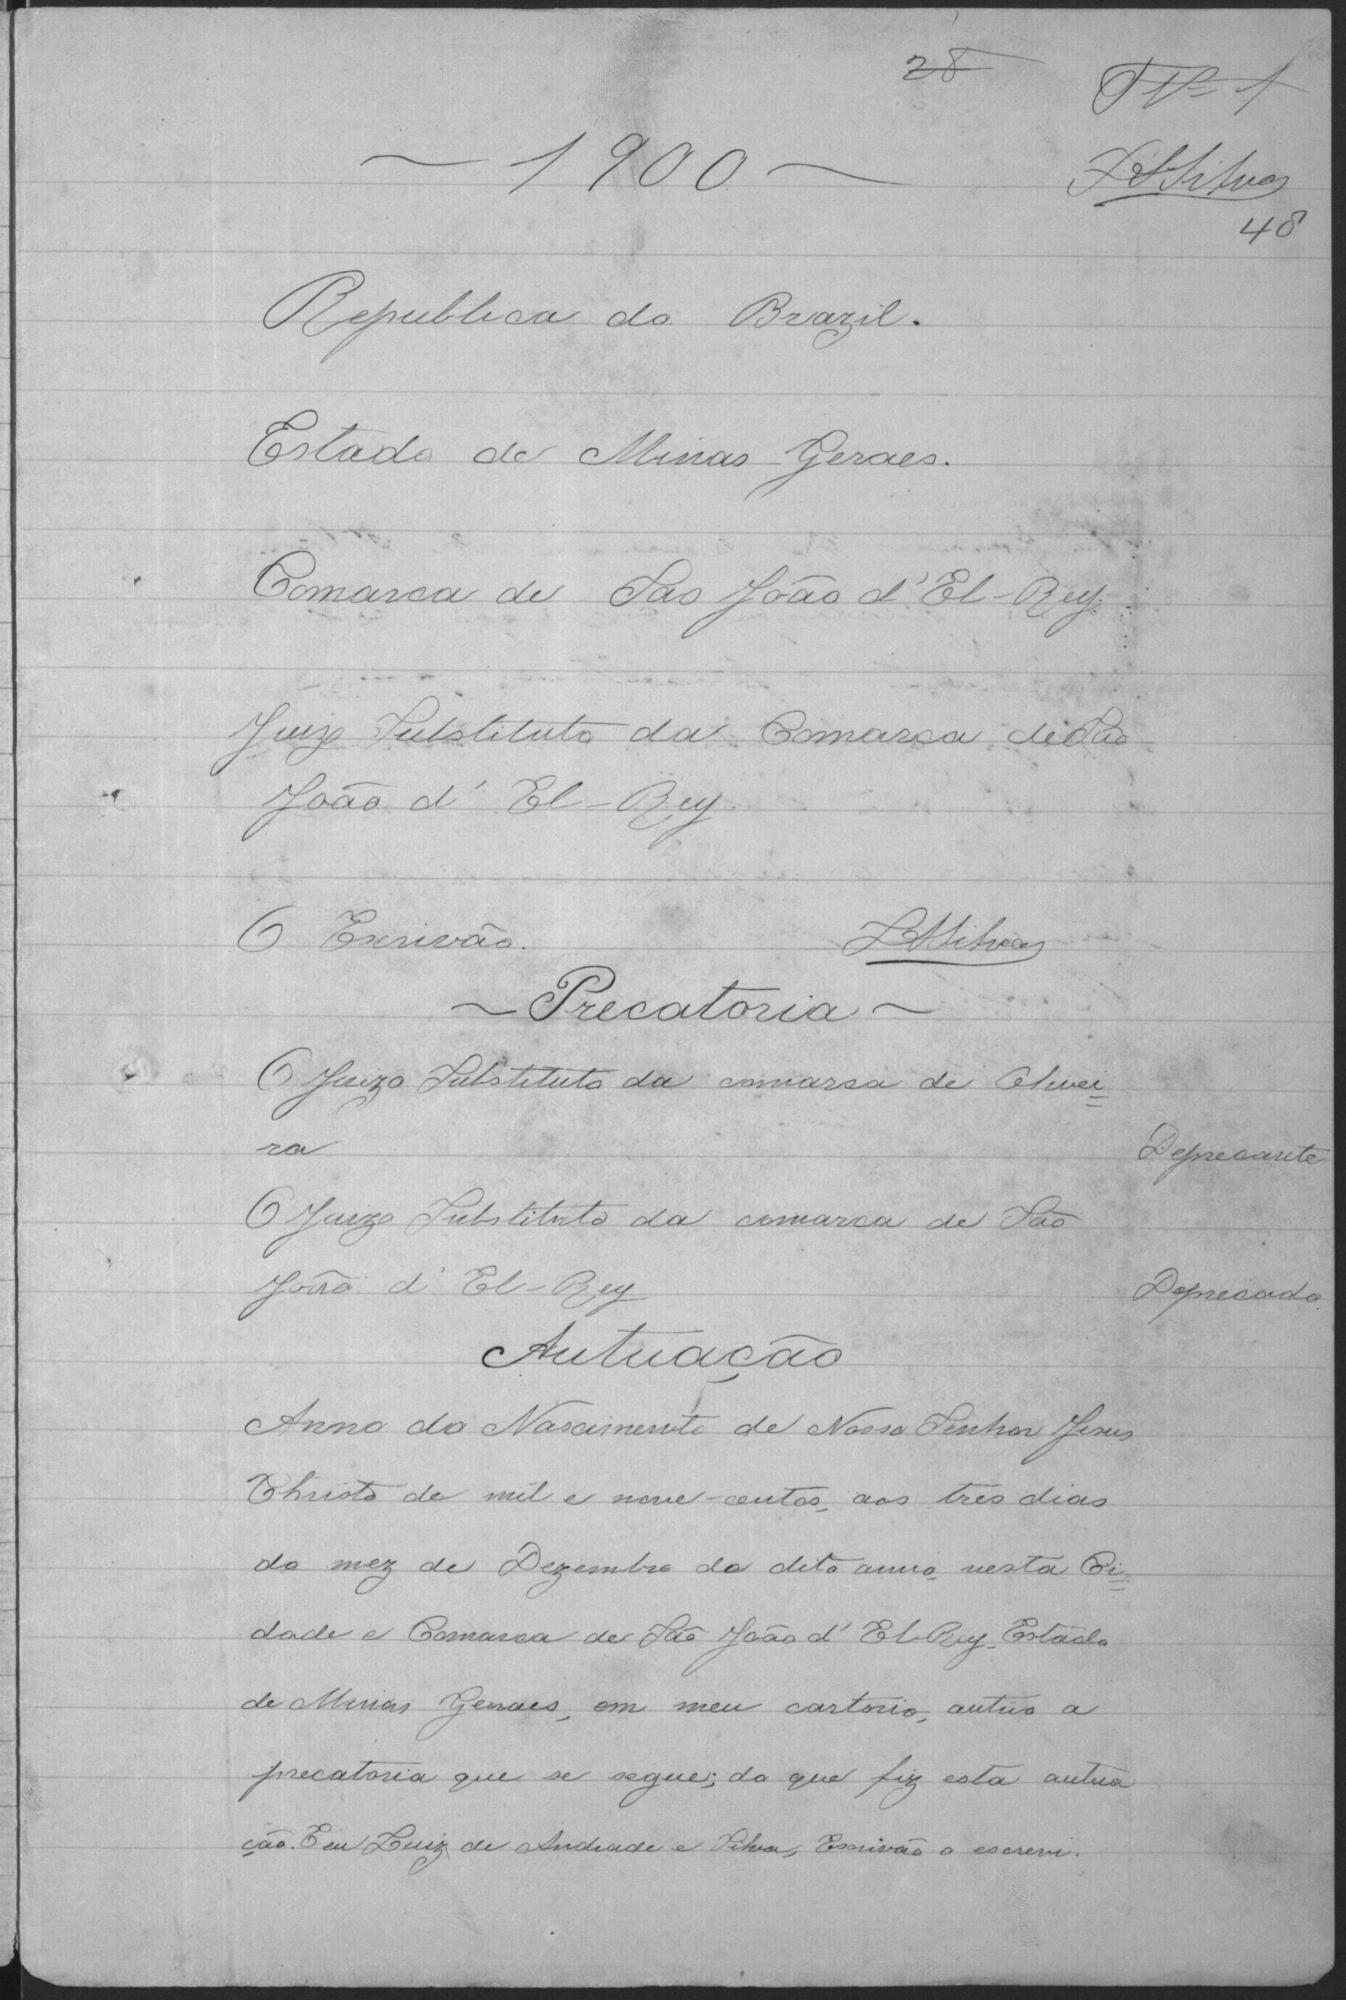 28
Nº 1
1900
LASilva
48
Republica do Brazil.
Estado de Minas Geraes.
Comarca de São João d'El-Rey
Juizo Substituto da Comarca de São
João d'El-Rey
O Escrivão. LASilva
Precatoria
O Juizo Substituto da comarca de Olivei=
ra Deprecante
O Juizo Substituto da comarca de São
João d'El-Rey Deprecado
Autuação
Anno do Nascimento de Nosso Senhor Jesus
Christo de mil e nove-centos, aos tres dias
do mez de Dezembro do dito anno, nesta Ci=
dade e Comarca de São João d'El-Rey, Estado
de Minas Geraes, em meu cartorio, autuo a
precatoria que se segue; do que fiz esta autua
ção. Eu Luiz de Andrade e Silva, Escrivão o escrevi.